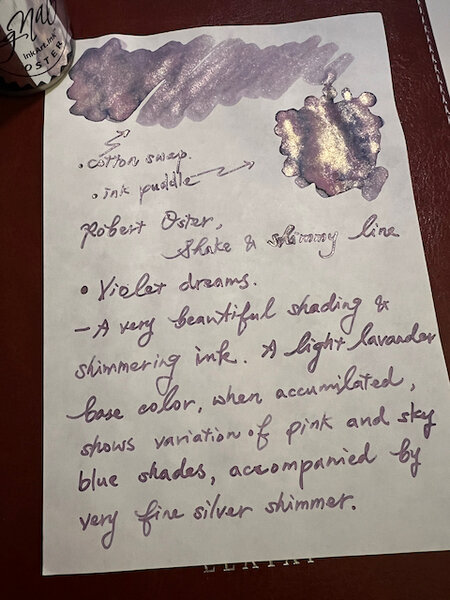 InkArt.Ink
OSTER
• cotton swap.
• ink puddle
Robert Oster,
Shake & shimmy line
• Violet dreams.
– A very beautiful shading &
shimmering ink. A light lavander
base color, when accumilated,
shows variation of pink and sky
blue shades, accompanied by
very fine silver shimmer.